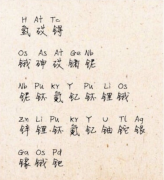 H At Tc
氢 砹 锝
Os As At Ga Nb
锇 砷 砹 镓 铌
Nb Pu Kr Y Pu Li Os
铌 钚 氪 钇 钚 锂 锇
Zn Li Pu Kr Y U Tl Ag
锌 锂 钚 氪 钇 铀 铊 银
Ga Os Pd
镓 锇 钯